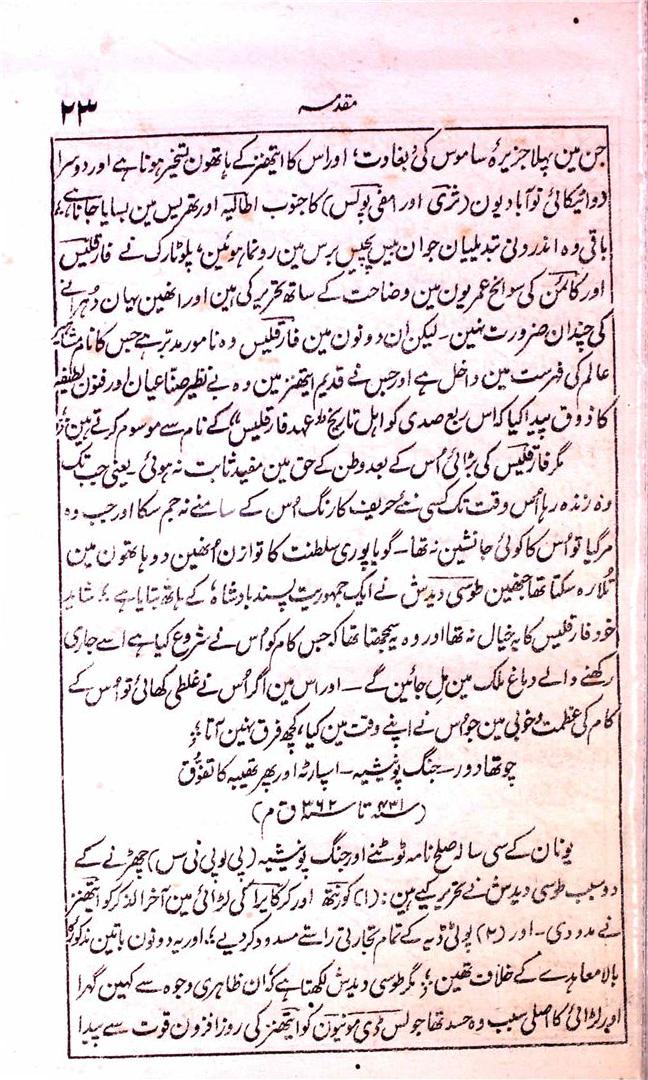 ۲۳
مقدمہ
جن مین پہلا جزیرۂ ساموس کی بغاوت، اور اس کا ایتھنز کے ہاتھون تسخیر ہونا ہے اور دوسرا
دو اٹیکائی نو آبادیون (ثرزی اور امفی پولس) کا جنوب اطالیہ اور تھریس مین بسایا جانا ہے؛
باقی وہ اندرونی تبدیلیان جو ان بیس پچیس برس مین رونما ہوئین، پلوٹارک نے فارقلیس
اور کائمن کی سوانح عمریون مین وضاحت کے ساتھ تحریر کی ہین اور انھین یہان دُہرانے
کی چندان ضرورت نہین۔ لیکن ان دونون مین فارقلیس وہ نامور مدبّر ہے جس کا نام مشاہیر
عالم کی فہرست مین داخل ہے اور جس نے قدیم ایتھنز مین وہ بے نظیر صناعیان اور فنون لطیفہ
کا ذوق پیدا کیا کہ اس ربع صدی کو اہل تاریخ "عہد فارقلیس" کے نام سے موسوم کرتے ہین؛
مگر فارقلیس کی بڑائی اُس کے بعد وطن کے حق مین مفید ثابت نہ ہوئی یعنی جب تک
وہ زندہ رہا اُس وقت تک کسی نئے حریف کا رنگ اُس کے سامنے نہ جم سکا اور جب وہ
مرگیا تو اُس کا کوئی جانشین نہ تھا۔ گویا پوری سلطنت کا توازن اُنھین دو ہاتھون مین
تُلا رہ سکتا تھا جنھین طوسی دیدش نے ایک جمہوریت پسند بادشاہ کے ہاتھ بتایا ہے؛ شاید
خود فارقلیس کا یہ خیال نہ تھا اور وہ یہ سمجھتا تھا کہ جس کام کو اُس نے شروع کیا ہے اسے جاری
رکھنے والے دماغ ملک مین مل جائین گے۔ اور اس مین اگر اُس نے غلطی کھائی تو اُس کے
کام کی عظمت و خوبی مین جو اُس نے اپنے وقت مین کیا، کچھ فرق نہین آتا؛
چوتھا دور۔ جنگ پونیشیہ۔ اسپارٹہ اور پھر تھیبہ کا تفوّق
(سنہ ۴۳۱ تا سنہ ۳۶۲ ق م)
یونان کے سی سالہ صلح نامہ ٹوٹنے اور جنگ پونیشیہ (پی لوپی نی سس) چھڑنے کے
دو سبب طوسی دیدش نے تحریر کیے ہین: (۱) کورنتھ اور کرکایرا کی لڑائی مین آخر الذکر کو ایتھنز
نے مدد دی۔ اور (۲) پوٹی ڈیہ کے تمام تجارتی راستے مسدود کر دیے؛ اور یہ دونون باتین مذکورۂ
بالا معاہدے کے خلاف تھین؛ مگر طوسی دیدش لکھتا ہے کہ ان ظاہری وجوہ سے کہین گہرا
اور لڑائی کا اصلی سبب وہ حسد تھا جو لس ڈی مونیون کو ایتھنز کی روز افزون قوت سے پیدا